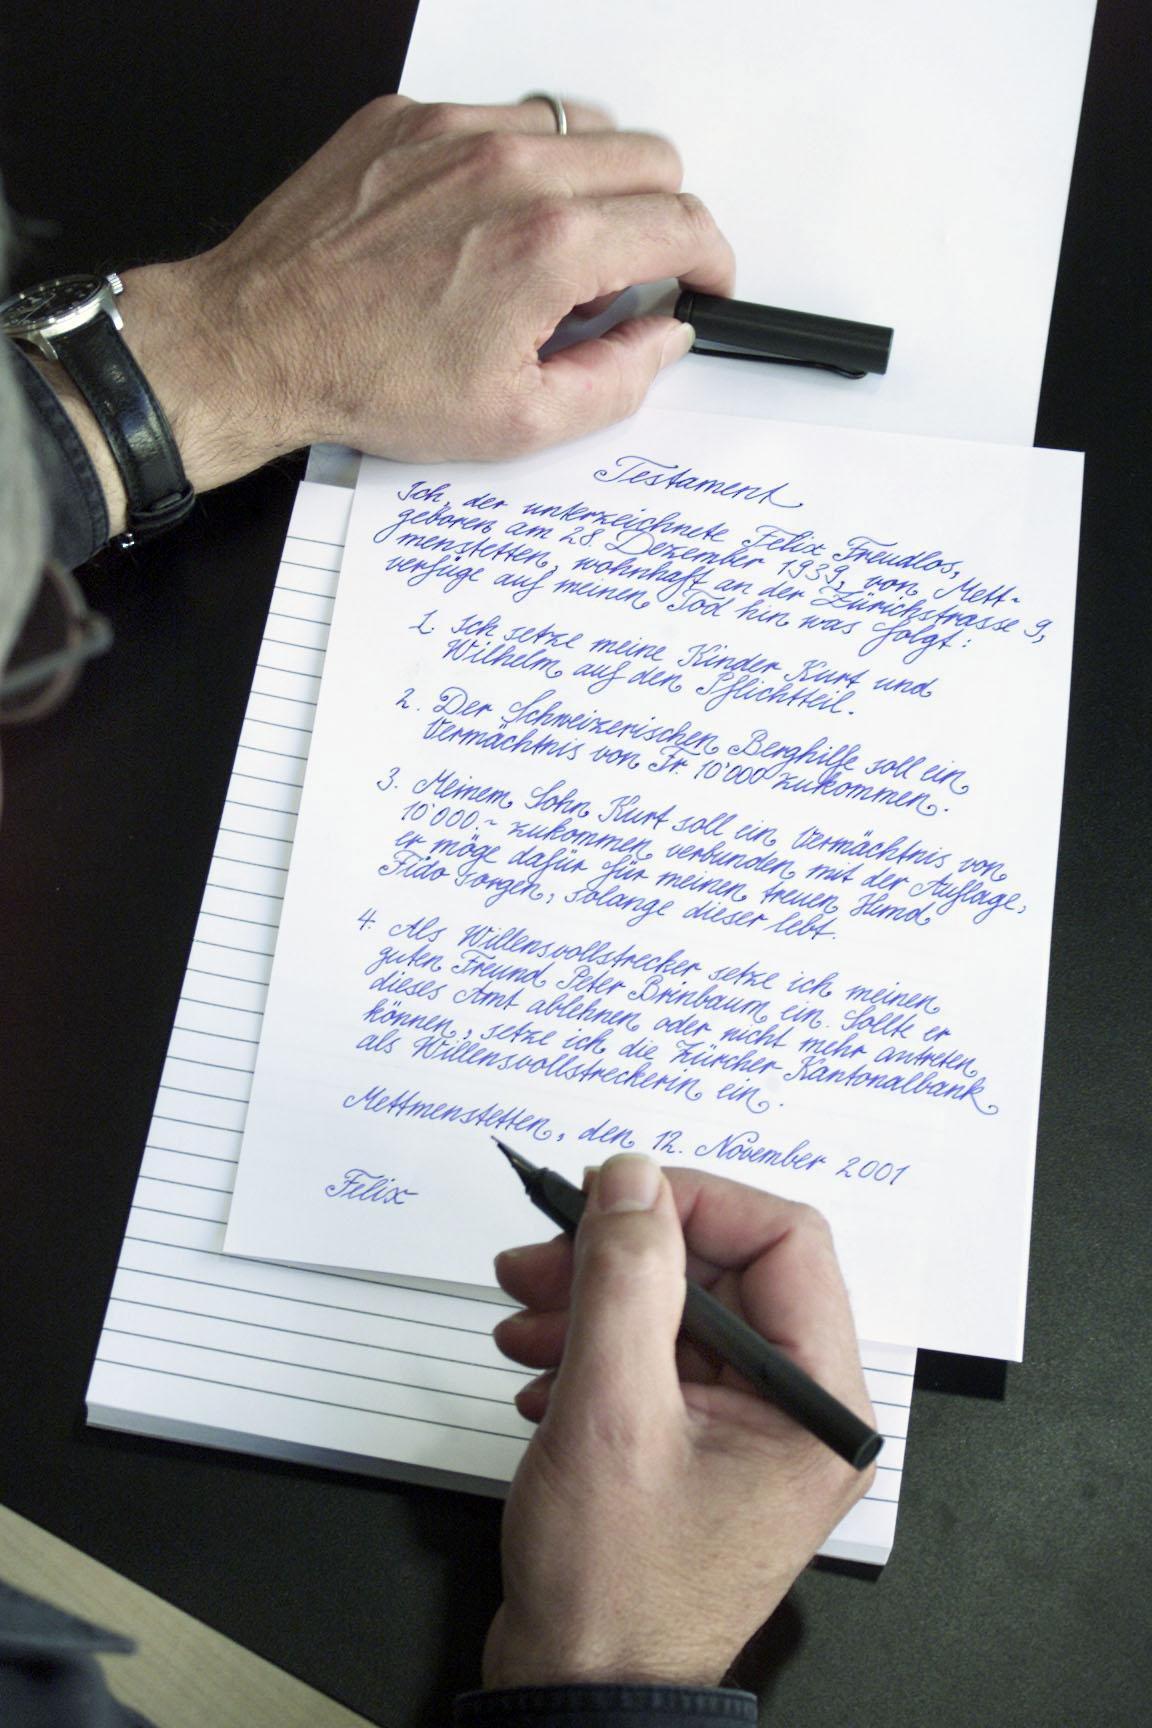 Testament
Ich, der unterzeichnete Felix Freudlos,
geboren am 28. Dezember 1939, von Mett-
menstetten, wohnhaft an der Zürichstrasse 9,
verfüge auf meinen Tod hin was folgt:
1. Ich setze meine Kinder Kurt und
Wilhelm auf den Pflichtteil.
2. Der Schweizerischen Berghilfe soll ein
Vermächtnis von Fr. 10'000 zukommen.
3. Meinem Sohn Kurt soll ein Vermächtnis von
10'000.- zukommen verbunden mit der Auflage,
er möge dafür für meinen treuen Hund
Fido sorgen, solange dieser lebt.
4. Als Willensvollstrecker setze ich meinen
guten Freund Peter Brinbaum ein. Sollte er
dieses Amt ablehnen oder nicht mehr antreten
können, setze ich die Zürcher Kantonalbank
als Willensvollstreckerin ein.
Mettmenstetten, den 12. November 2001
Felix